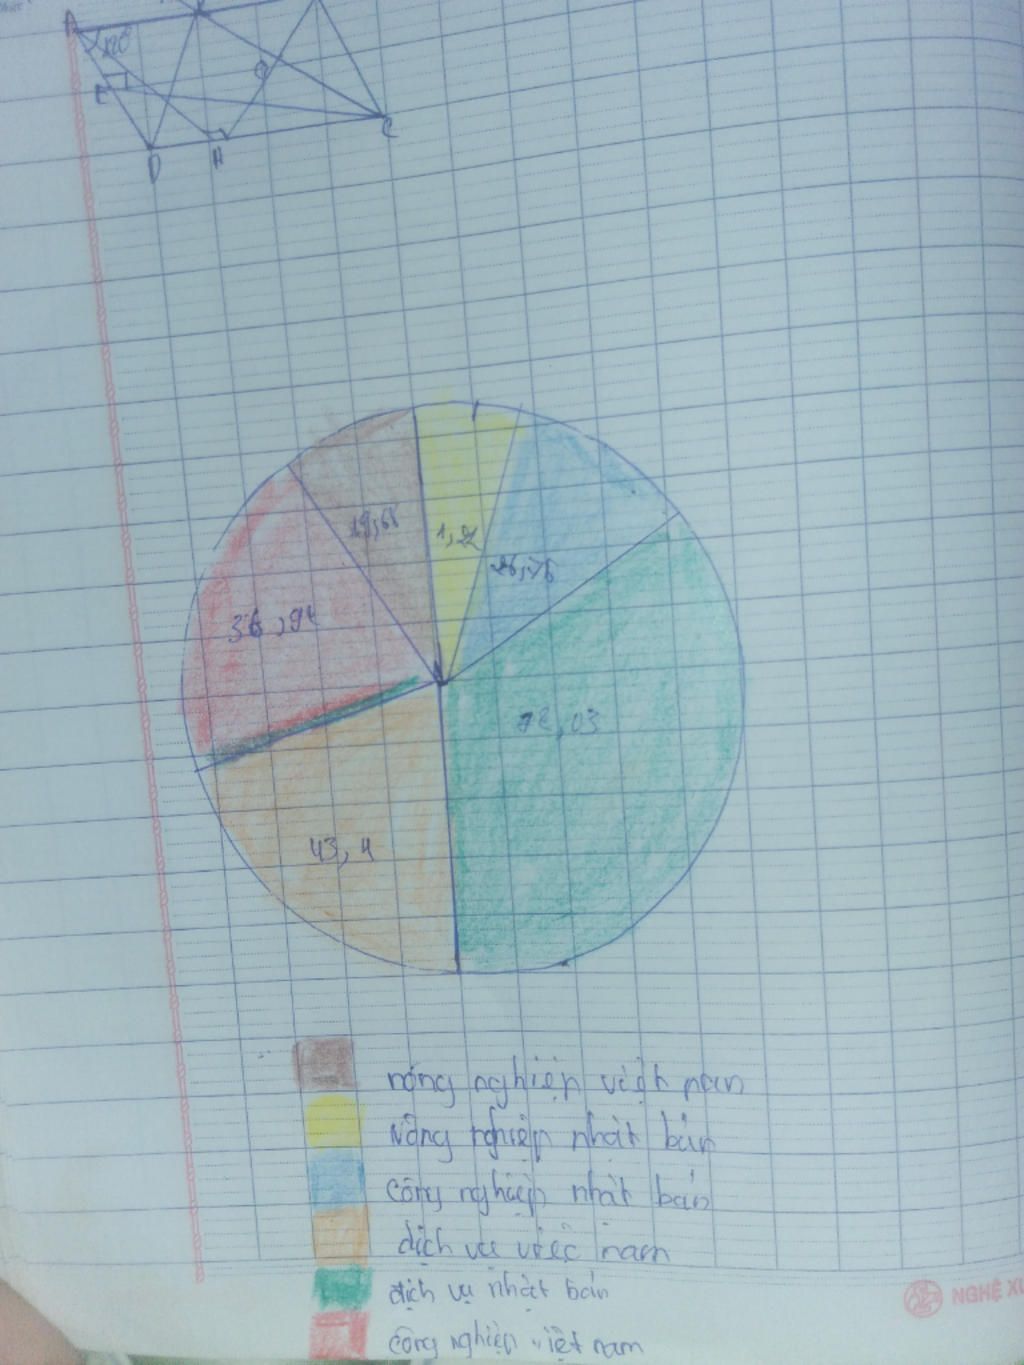 A
120°
E
I
D
H
C
19,68
1,22
26,75
36,94
72,03
43,4
nông nghiệp việt nam
Nông nghiệp nhật bản
công nghiệp nhật bản
dịch vụ việc nam
dịch vụ nhật bản
công nghiệp việt nam
NGHỆ XU